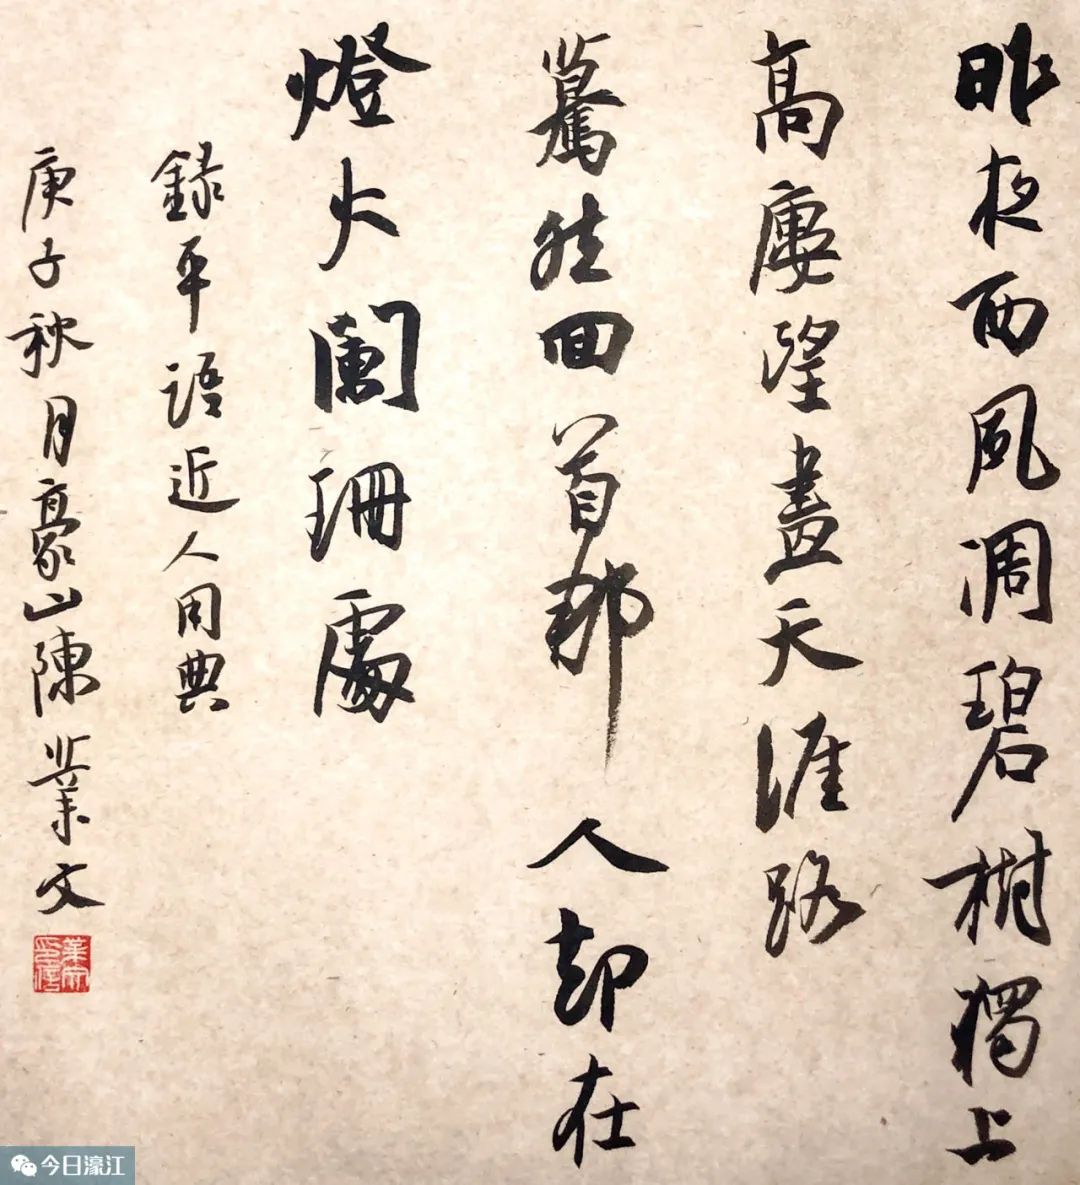 昨夜西風凋碧樹獨上
高廔望盡天涯路
驀然回首那人却在
燈火闌珊處
録平語近人用典
庚子秋月豪山陳業文
業文印信
今日濠江